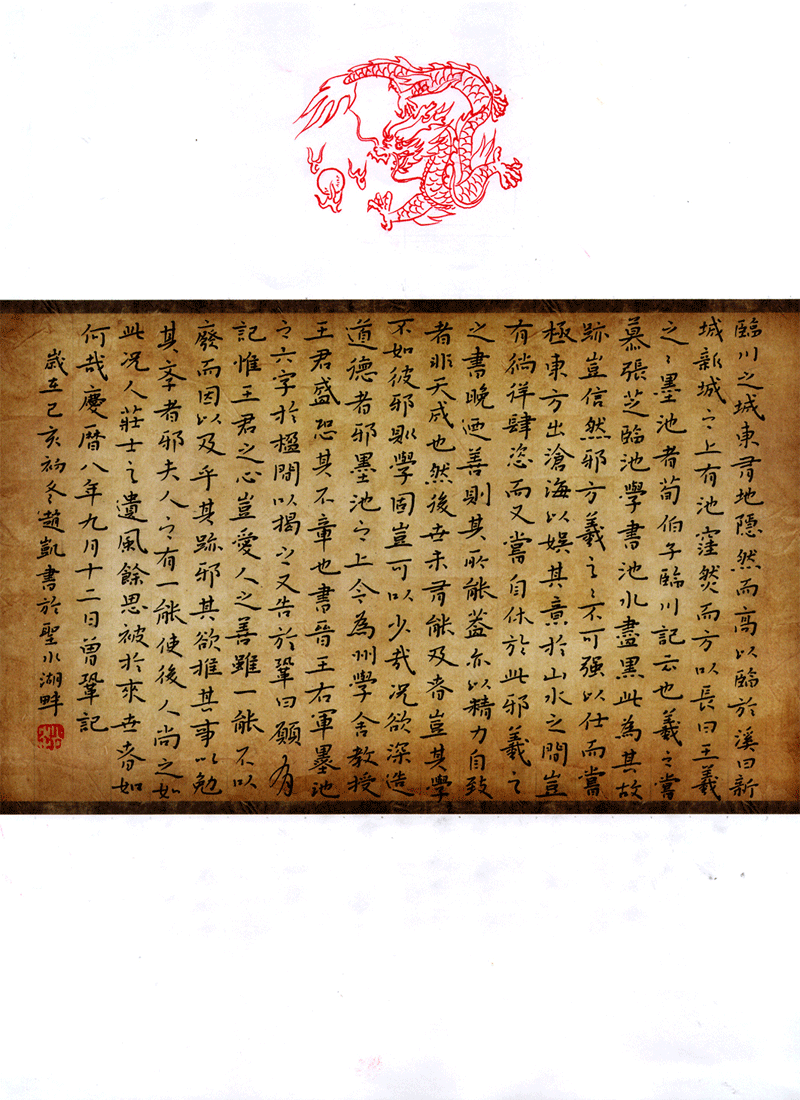 臨川之城東有地隱然而高以臨於溪曰新
城新城之上有池窪然而方以長曰王羲
之〻墨池者荀伯子臨川記云也羲之嘗
慕張芝臨池學書池水盡黑此為其故
跡豈信然邪方羲之〻不可强以仕而嘗
極東方出滄海以娱其意於山水之間豈
有徜徉肆恣而又嘗自休於此邪羲之
之書晚迺善則其所能蓋亦以精力自致
者非天成也然後世未有能及者豈其學
不如彼邪則學固豈可以少哉况欲深造
道德者邪墨池之上今為州學舍教授
王君盛恐其不章也書晉王右軍墨池
之六字於楹間以揭之又告於鞏曰願有
記惟王君之心豈愛人之善雖一能不以
廢而因以及乎其跡邪其欲推其事以勉
其學者邪夫人之有一能使後人尚之如
此况人莊士之遺風餘思被於來世者如
何哉慶曆八年九月十二日曾鞏記
歲在己亥初冬趙凱書於聖水湖畔